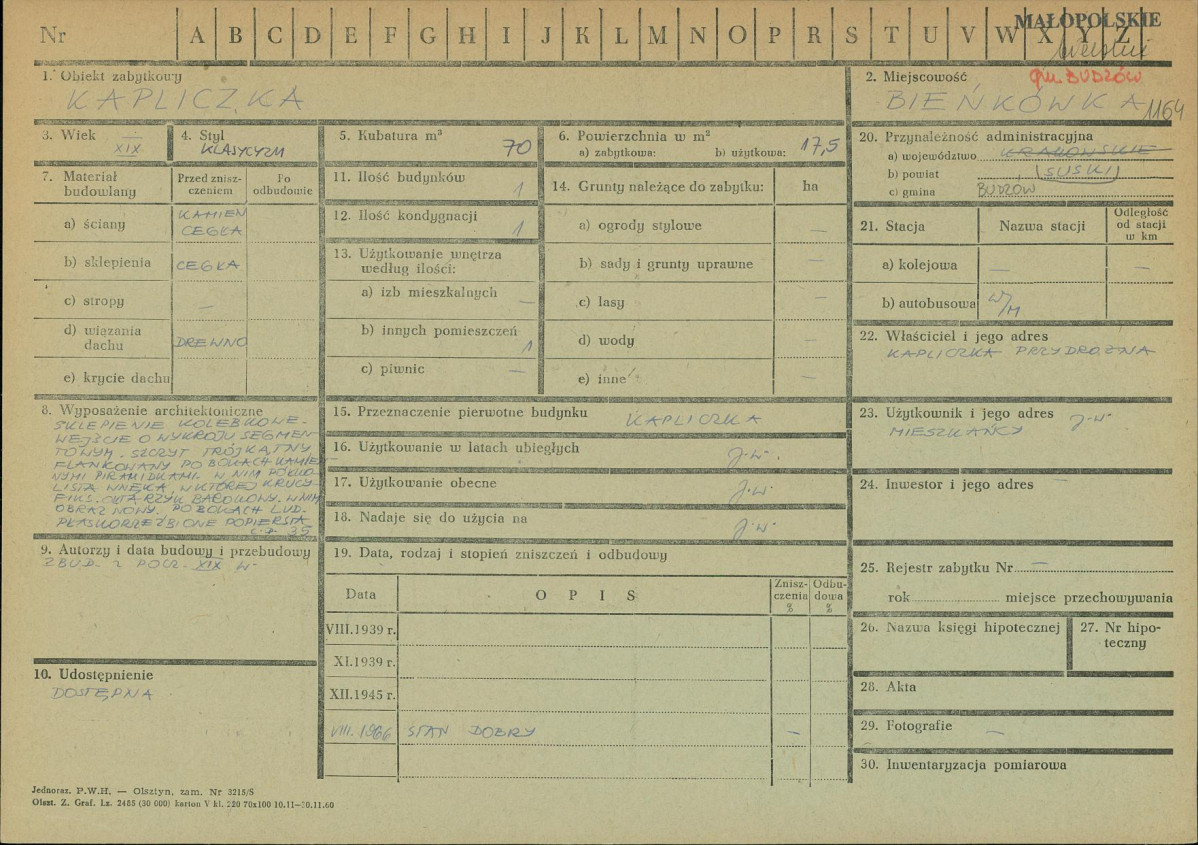 Nr A B C D E F G H I J K L M N O P R S T U V W X Y Z
MAŁOPOLSKIE
gm. BUDZÓW
1. Obiekt zabytkowy
KAPLICZKA
2. Miejscowość
BIEŃKÓWKA 1164
3. Wiek
XIX
4. Styl
KLASYCYZM
5. Kubatura m³
70
6. Powierzchnia w m²
a) zabytkowa: b) użytkowa: 17,5
7. Materiał budowlany
Przed zniszczeniem
Po odbudowie
a) ściany KAMIEŃ CEGŁA
b) sklepienia CEGŁA
c) stropy —
d) wiązania dachu DREWNO
e) krycie dachu
8. Wyposażenie architektoniczne
SKLEPIENIE KOLEBKOWE.
WEJŚCIE O WYKROJU SEGMEN
TOWYM. SZCZYT TRÓJKĄTNY
FLANKOWANY PO BOKACH KAMIEN
NYMI PIRAMIDKAMI. W NIM PÓŁKO
LISTA WNĘKA, W KTÓREJ KRUCY-
FIKS. OŁTARZYK BAROKOWY. W NIM
OBRAZ NOWY. PO BOKACH LUD.
PŁASKORZEŹBIONE POPIERSIA
9. Autorzy i data budowy i przebudowy
ZBUD. Z POCZ. XIX W.
10. Udostępnienie
DOSTĘPNA
11. Ilość budynków 1
12. Ilość kondygnacji 1
13. Użytkowanie wnętrza
według ilości:
a) izb mieszkalnych —
b) innych pomieszczeń 1
c) piwnic —
14. Grunty należące do zabytku: ha
a) ogrody stylowe —
b) sady i grunty uprawne —
c) lasy —
d) wody —
e) inne —
15. Przeznaczenie pierwotne budynku KAPLICZKA
16. Użytkowanie w latach ubiegłych j.w.
17. Użytkowanie obecne j.w.
18. Nadaje się do użycia na j.w.
19. Data, rodzaj i stopień zniszczeń i odbudowy
Data OPIS Zniszczenia % Odbudowa %
VIII.1939 r.
XI.1939 r.
XII.1945 r.
VIII.1966 STAN DOBRY —
20. Przynależność administracyjna
a) województwo KRAKOWSKIE
b) powiat (SUSKI)
c) gmina BUDZÓW
21. Stacja Nazwa stacji Odległość od stacji w km
a) kolejowa — —
b) autobusowa W/M
22. Właściciel i jego adres
KAPLICZKA PRZYDROŻNA
23. Użytkownik i jego adres j.w.
MIESZKAŃCY
24. Inwestor i jego adres —
25. Rejestr zabytku Nr —
rok miejsce przechowywania
26. Nazwa księgi hipotecznej
27. Nr hipoteczny
28. Akta
29. Fotografie —
30. Inwentaryzacja pomiarowa
Jednoraz. P.W.H. — Olsztyn, zam. Nr 3215/S
Olszt. Z. Graf. Lz. 2485 (30 000) karton V kl. 220 70x100 10.11—30.11.60